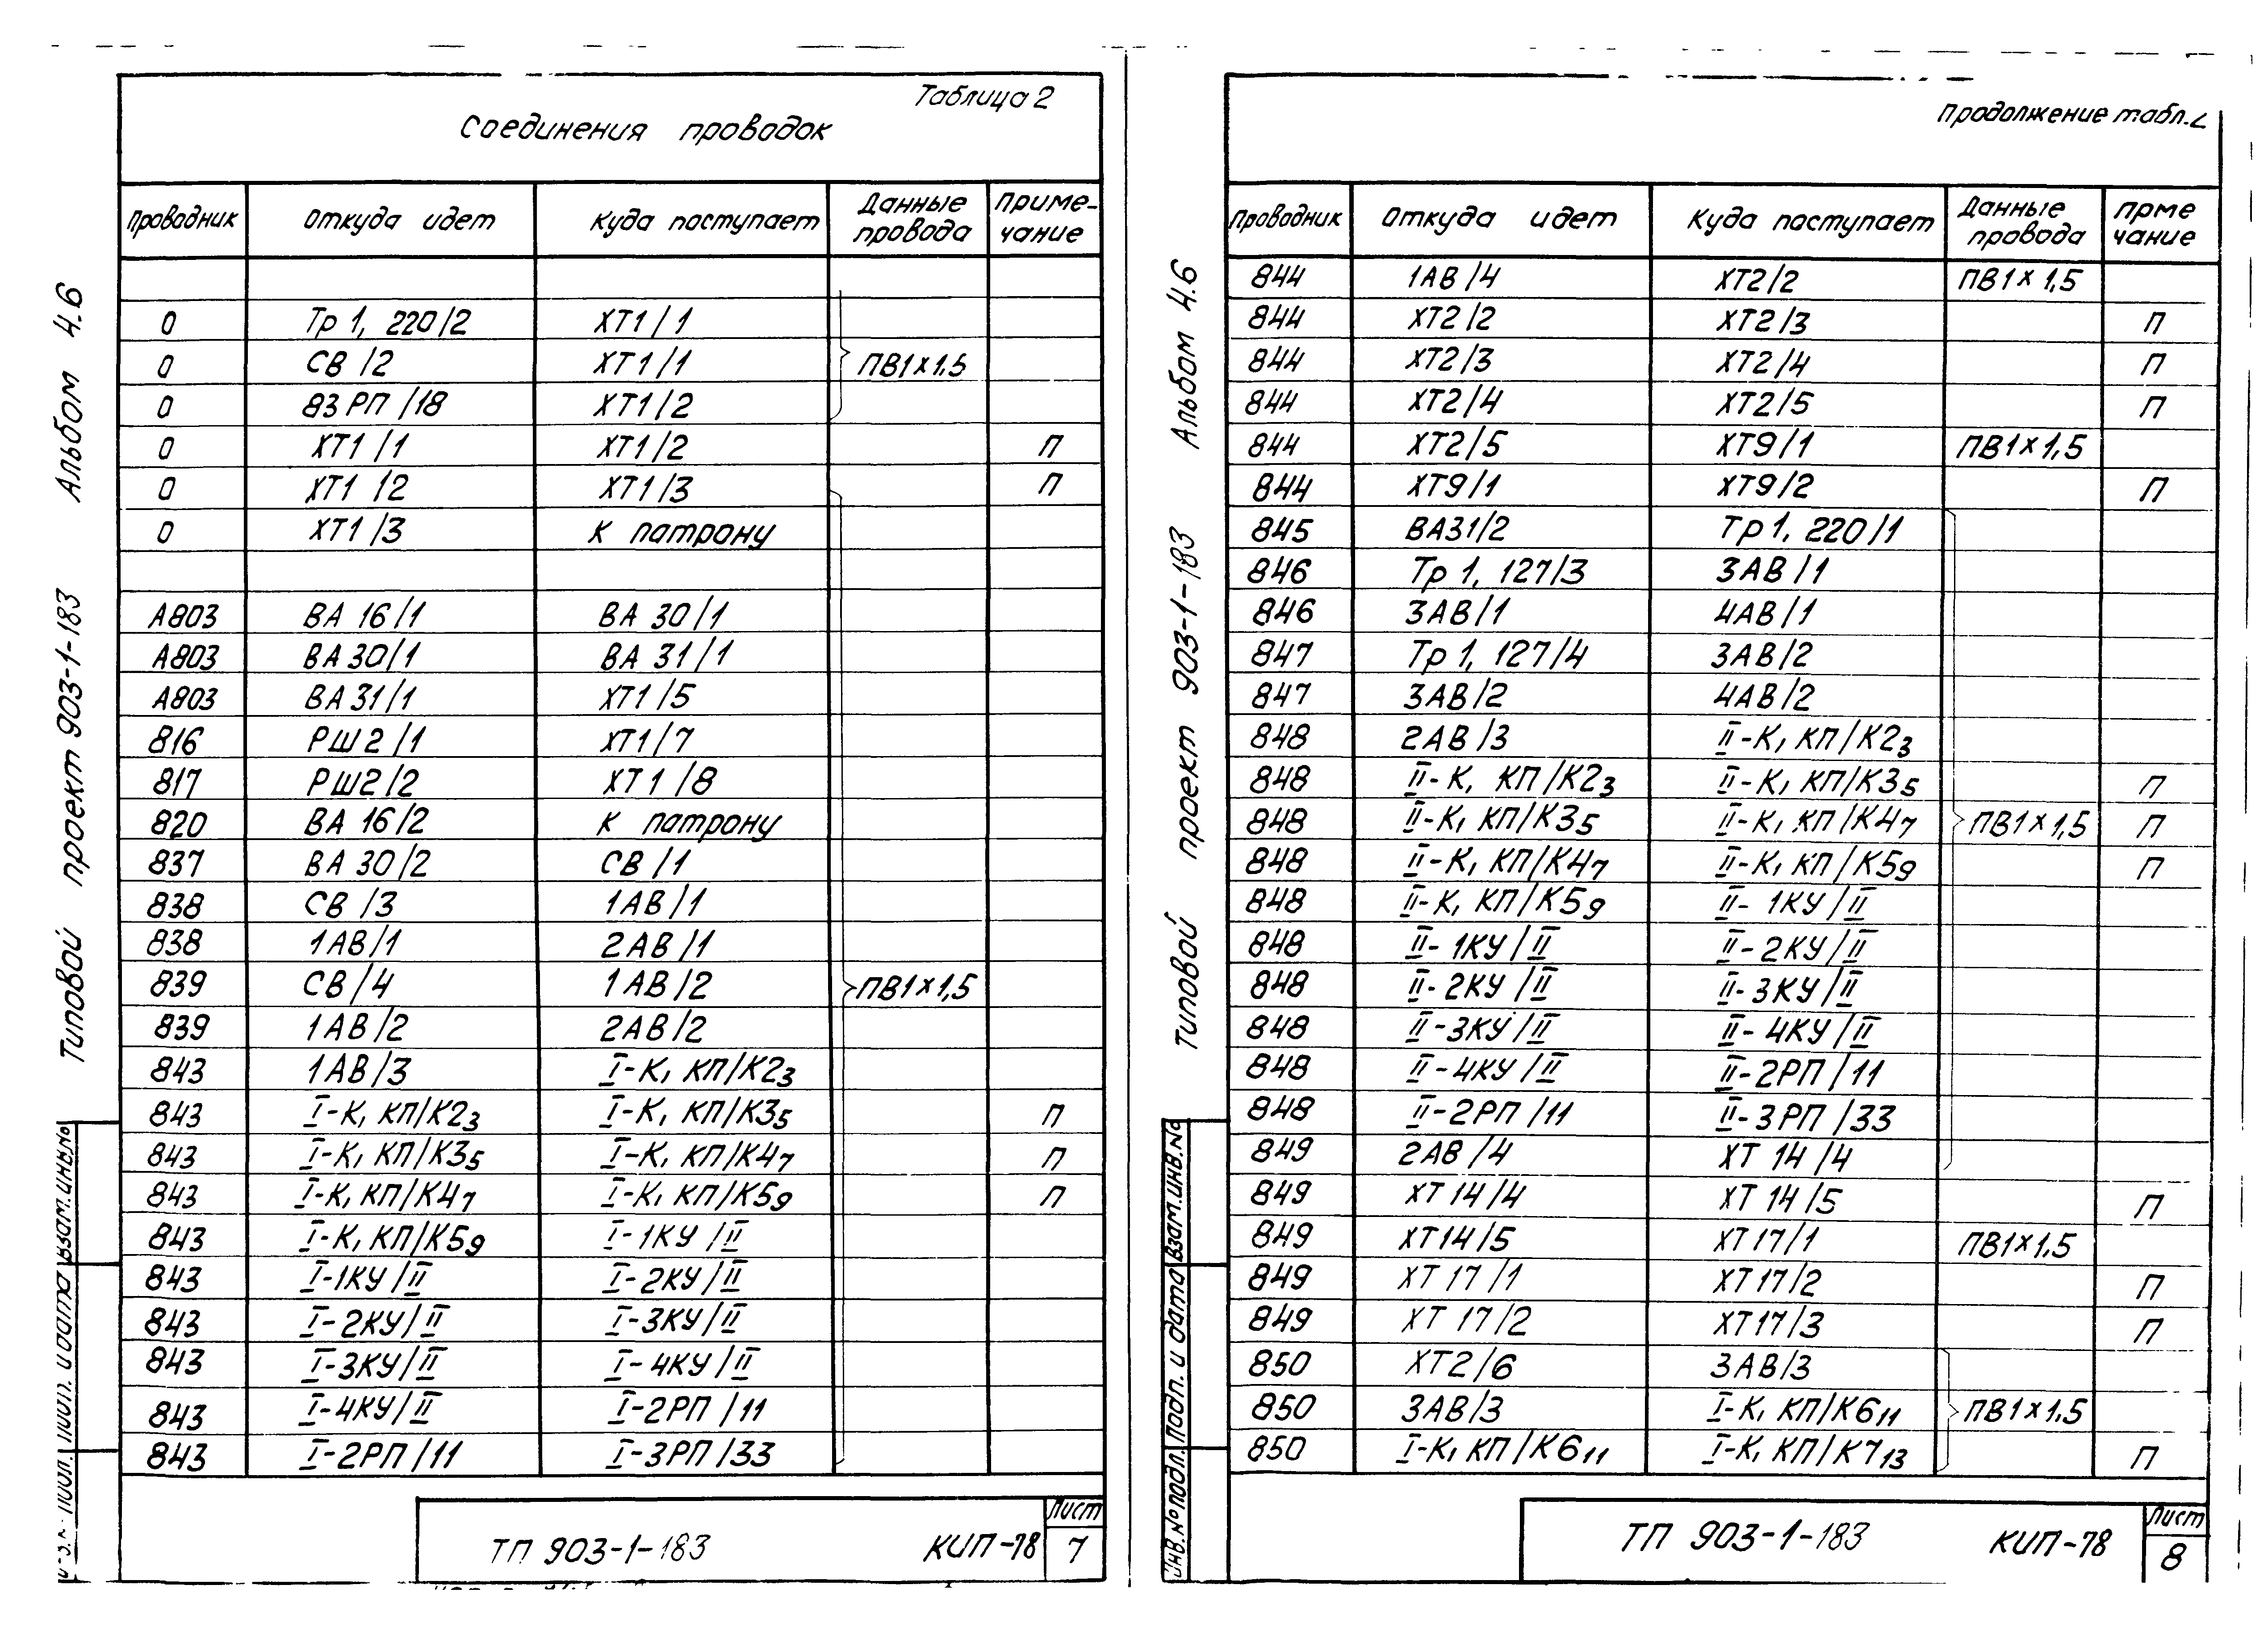 Таблица 2
Соединения проводок
Проводник Откуда идет Куда поступает Данные провода Приме-чание
0 Тр 1, 220/2 ХТ1/1
0 СВ/2 ХТ1/1 ПВ1х1,5
0 83РП/18 ХТ1/2
0 ХТ1/1 ХТ1/2 П
0 ХТ1/2 ХТ1/3 П
0 ХТ1/3 К патрону
А803 ВА 16/1 ВА 30/1
А803 ВА30/1 ВА 31/1
А803 ВА31/1 ХТ1/5
816 РШ2/1 ХТ1/7
817 РШ2/2 ХТ1/8
820 ВА 16/2 К патрону
837 ВА 30/2 СВ/1
838 СВ/3 1АВ/1
838 1АВ/1 2АВ/1
839 СВ/4 1АВ/2 ПВ1х1,5
839 1АВ/2 2АВ/2
843 1АВ/3 I-К, КП/К2₃
843 I-К, КП/К2₃ I-К, КП/К3₅ П
843 I-К, КП/К3₅ I-К, КП/К4₇ П
843 I-К, КП/К4₇ I-К, КП/К5₉ П
843 I-К, КП/К5₉ I-1КУ/II
843 I-1КУ/II I-2КУ/II
843 I-2КУ/II I-3КУ/II
843 I-3КУ/II I-4КУ/II
843 I-4КУ/II I-2РП/11
843 I-2РП/11 I-3РП/33
ТП 903-1-183 КИП-78 Лист 7
Типовой проект 903-1-183 Альбом 4.6
Подп. и дата Взам.инв.№
Продолжение табл.2
Проводник Откуда идет Куда поступает Данные провода Прме чание
844 1АВ/4 ХТ2/2 ПВ1х1,5
844 ХТ2/2 ХТ2/3 П
844 ХТ2/3 ХТ2/4 П
844 ХТ2/4 ХТ2/5 П
844 ХТ2/5 ХТ9/1 ПВ1х1,5
844 ХТ9/1 ХТ9/2 П
845 ВА31/2 Тр 1, 220/1
846 Тр 1, 127/3 3АВ/1
846 3АВ/1 4АВ/1
847 Тр 1, 127/4 3АВ/2
847 3АВ/2 4АВ/2
848 2АВ/3 II-К, КП/К2₃
848 II-К, КП/К2₃ II-К, КП/К3₅ П
848 II-К, КП/К3₅ II-К, КП/К4₇ ПВ1х1,5 П
848 II-К, КП/К4₇ II-К, КП/К5₉ П
848 II-К, КП/К5₉ II-1КУ/II
848 II-1КУ/II II-2КУ/II
848 II-2КУ/II II-3КУ/II
848 II-3КУ/II II-4КУ/II
848 II-4КУ/II II-2РП/11
848 II-2РП/11 II-3РП/33
849 2АВ/4 ХТ 14/4
849 ХТ 14/4 ХТ 14/5 П
849 ХТ14/5 ХТ17/1 ПВ1х1,5
849 ХТ 17/1 ХТ17/2 П
849 ХТ 17/2 ХТ17/3 П
850 ХТ2/6 3АВ/3
850 3АВ/3 I-К, КП/К6₁₁ ПВ1х1,5
850 I-К, КП/К6₁₁ I-К, КП/К7₁₃ П
ТП 903-1-183 КИП-78 Лист 8
Типовой проект 903-1-183 Альбом 4.6
Инв.№подл. Подп. и дата Взам.инв.№